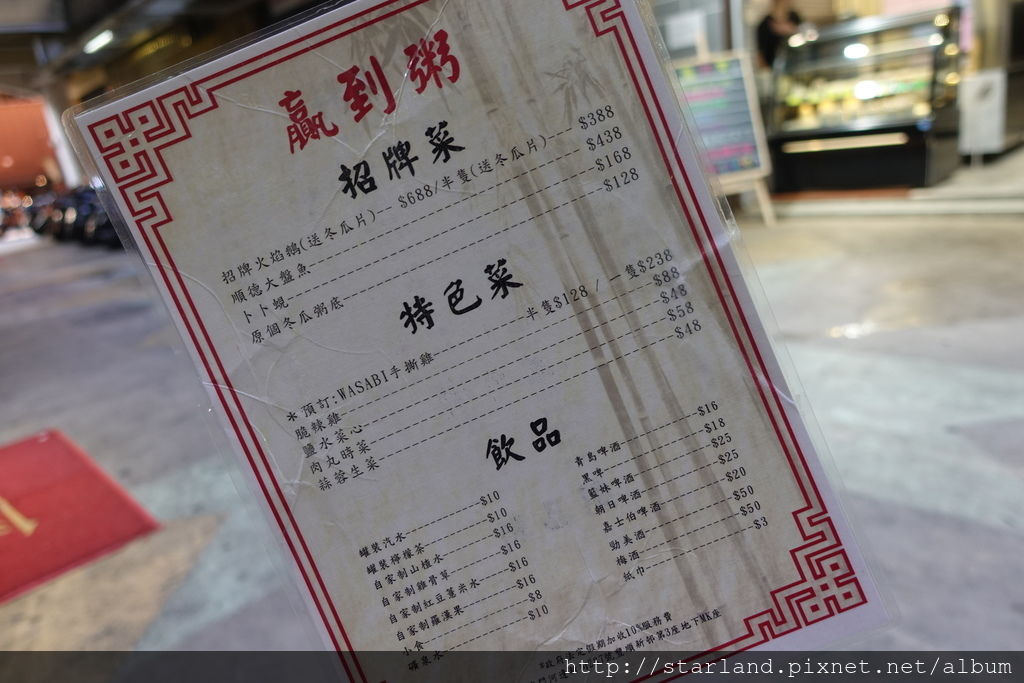 贏到粥
招牌菜
招牌火焰鵝(送冬瓜片)-- $688/半隻(送冬瓜片)---$388
順德大盤魚---$438
卜卜蜆---$168
原個冬瓜粥底---$128
特色菜
*預訂:WASABI手撕雞---半隻$128 / 一隻$238
脆辣雞---$88
鹽水菜心---$48
肉丸時菜---$58
蒜蓉生菜---$48
飲品
罐裝汽水---$10
罐裝檸檬茶---$10
自家制山楂水---$16
自家制雞骨草---$16
自家制紅豆薏米水---$16
自家制羅漢果---$16
小食---$8
礦泉水---$10
青島啤酒---$16
黑啤---$18
藍妹啤酒---$25
朝日啤酒---$25
嘉士伯啤酒---$20
勁美酒---$50
梅酒---$50
紙巾---$3
假期加收10%服務費
順新邨第3座地下MK座
http://starland.pixnet.net/album